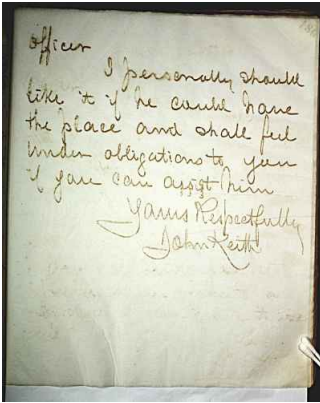 officer
I personally should
like it if he could have
the place and shall feel
under obligations to you
if you can assist him
Yours Respectfully
John Keith